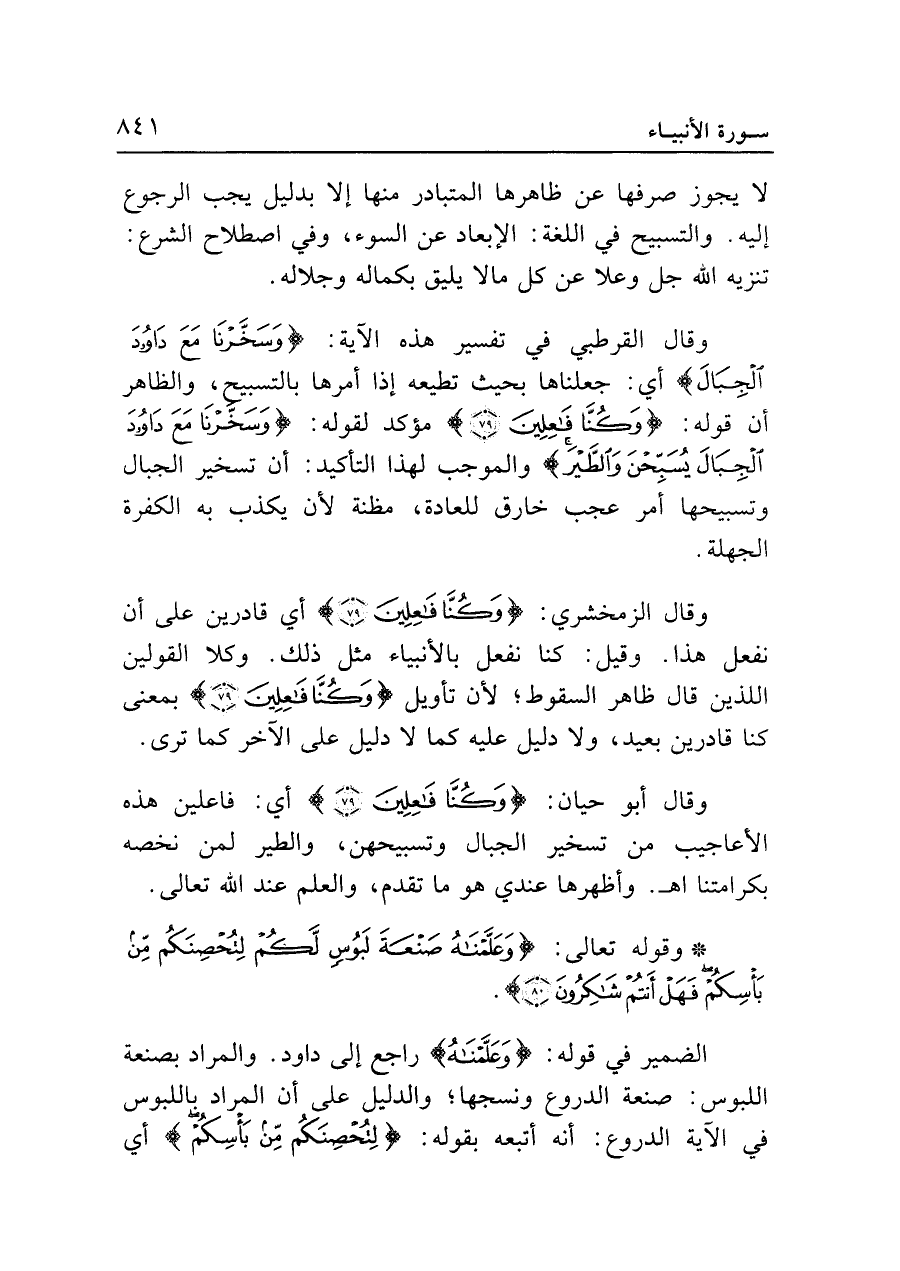 سورة الأنبياء ٨٤١
لا يجوز صرفها عن ظاهرها المتبادر منها إلا بدليل يجب الرجوع
إليه. والتسبيح في اللغة: الإبعاد عن السوء، وفي اصطلاح الشرع:
تنزيه الله جل وعلا عن كل مالا يليق بكماله وجلاله.
وقال القرطبي في تفسير هذه الآية: ﴿وَسَخَّرْنَا مَعَ دَاوُۥدَ
ٱلْجِبَالَ﴾ أي: جعلناها بحيث تطيعه إذا أمرها بالتسبيح، والظاهر
أن قوله: ﴿وَكُنَّا فَٰعِلِينَ ٧٩﴾ مؤكد لقوله: ﴿وَسَخَّرْنَا مَعَ دَاوُۥدَ
ٱلْجِبَالَ يُسَبِّحْنَ وَٱلطَّيْرَۚ﴾ والموجب لهذا التأكيد: أن تسخير الجبال
وتسبيحها أمر عجب خارق للعادة، مظنة لأن يكذب به الكفرة
الجهلة.
وقال الزمخشري: ﴿وَكُنَّا فَٰعِلِينَ ٧٩﴾ أي قادرين على أن
نفعل هذا. وقيل: كنا نفعل بالأنبياء مثل ذلك. وكلا القولين
اللذين قال ظاهر السقوط؛ لأن تأويل ﴿وَكُنَّا فَٰعِلِينَ ٧٩﴾ بمعنى
كنا قادرين بعيد، ولا دليل عليه كما لا دليل على الآخر كما ترى.
وقال أبو حيان: ﴿وَكُنَّا فَٰعِلِينَ ٧٩﴾ أي: فاعلين هذه
الأعاجيب من تسخير الجبال وتسبيحهن، والطير لمن نخصه
بكرامتنا اهـ. وأظهرها عندي هو ما تقدم، والعلم عند الله تعالى.
* وقوله تعالى: ﴿وَعَلَّمْنَٰهُ صَنْعَةَ لَبُوسٍ لَّكُمْ لِتُحْصِنَكُم مِّنۢ
بَأْسِكُمْۖ فَهَلْ أَنتُمْ شَٰكِرُونَ ٨٠﴾.
الضمير في قوله: ﴿وَعَلَّمْنَٰهُ﴾ راجع إلى داود. والمراد بصنعة
اللبوس: صنعة الدروع ونسجها؛ والدليل على أن المراد باللبوس
في الآية الدروع: أنه أتبعه بقوله: ﴿لِتُحْصِنَكُم مِّنۢ بَأْسِكُمْۖ﴾ أي